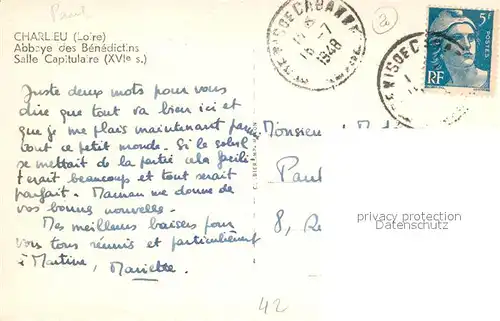 Paul
CHARLIEU (Loire)
Abbaye des Bénédictins
Salle Capitulaire (XVIe s.)
Juste deux mots pour vous
dire que tout va bien ici et
que je me plais maintenant parmi
tout ce petit monde. Si le soleil
se mettait de la partie cela facili-
terait beaucoup et tout serait
parfait. Maman me donne de
vos bonnes nouvelles.
Mes meilleurs baisers pour
vous tous réunis et particulièrement
à Martine, Marielle.
ST DENIS DE CABANNE
-7
1948
5F
POSTES
RF
Monsieur
Paul
8, R
privacy protection
Datenschutz
42